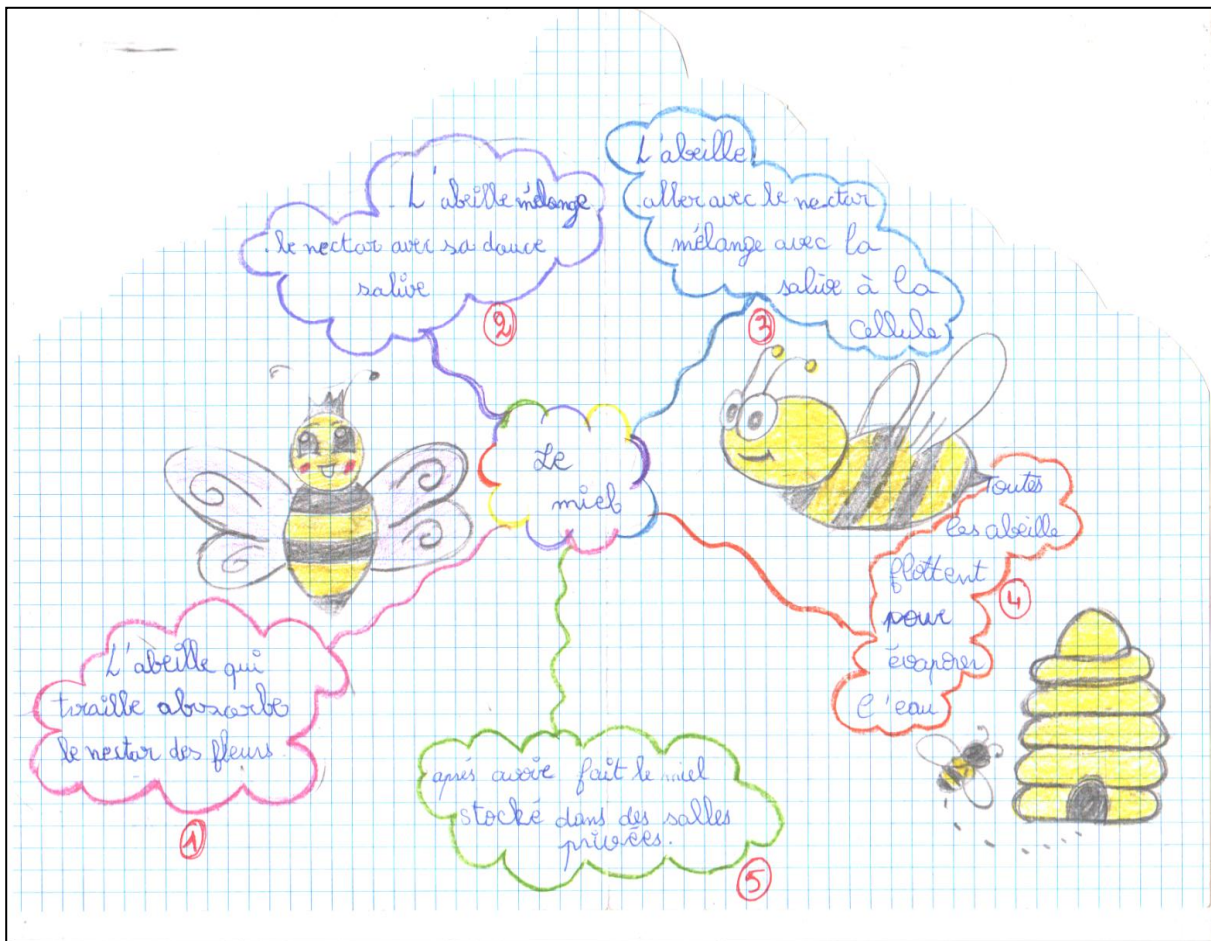 Le
miel
L'abeille qui
traille abusorbe
le nectar des fleurs
1
L'abeille mélange
le nectar avec sa douce
salive
2
L'abeille
aller avec le nectar
mélange avec la
salive à la
cellule
3
Toutes
les abeille
flottent
pour
évaporer
l'eau
4
aprés avoir fait le miel
stocké dans des salles
privées.
5